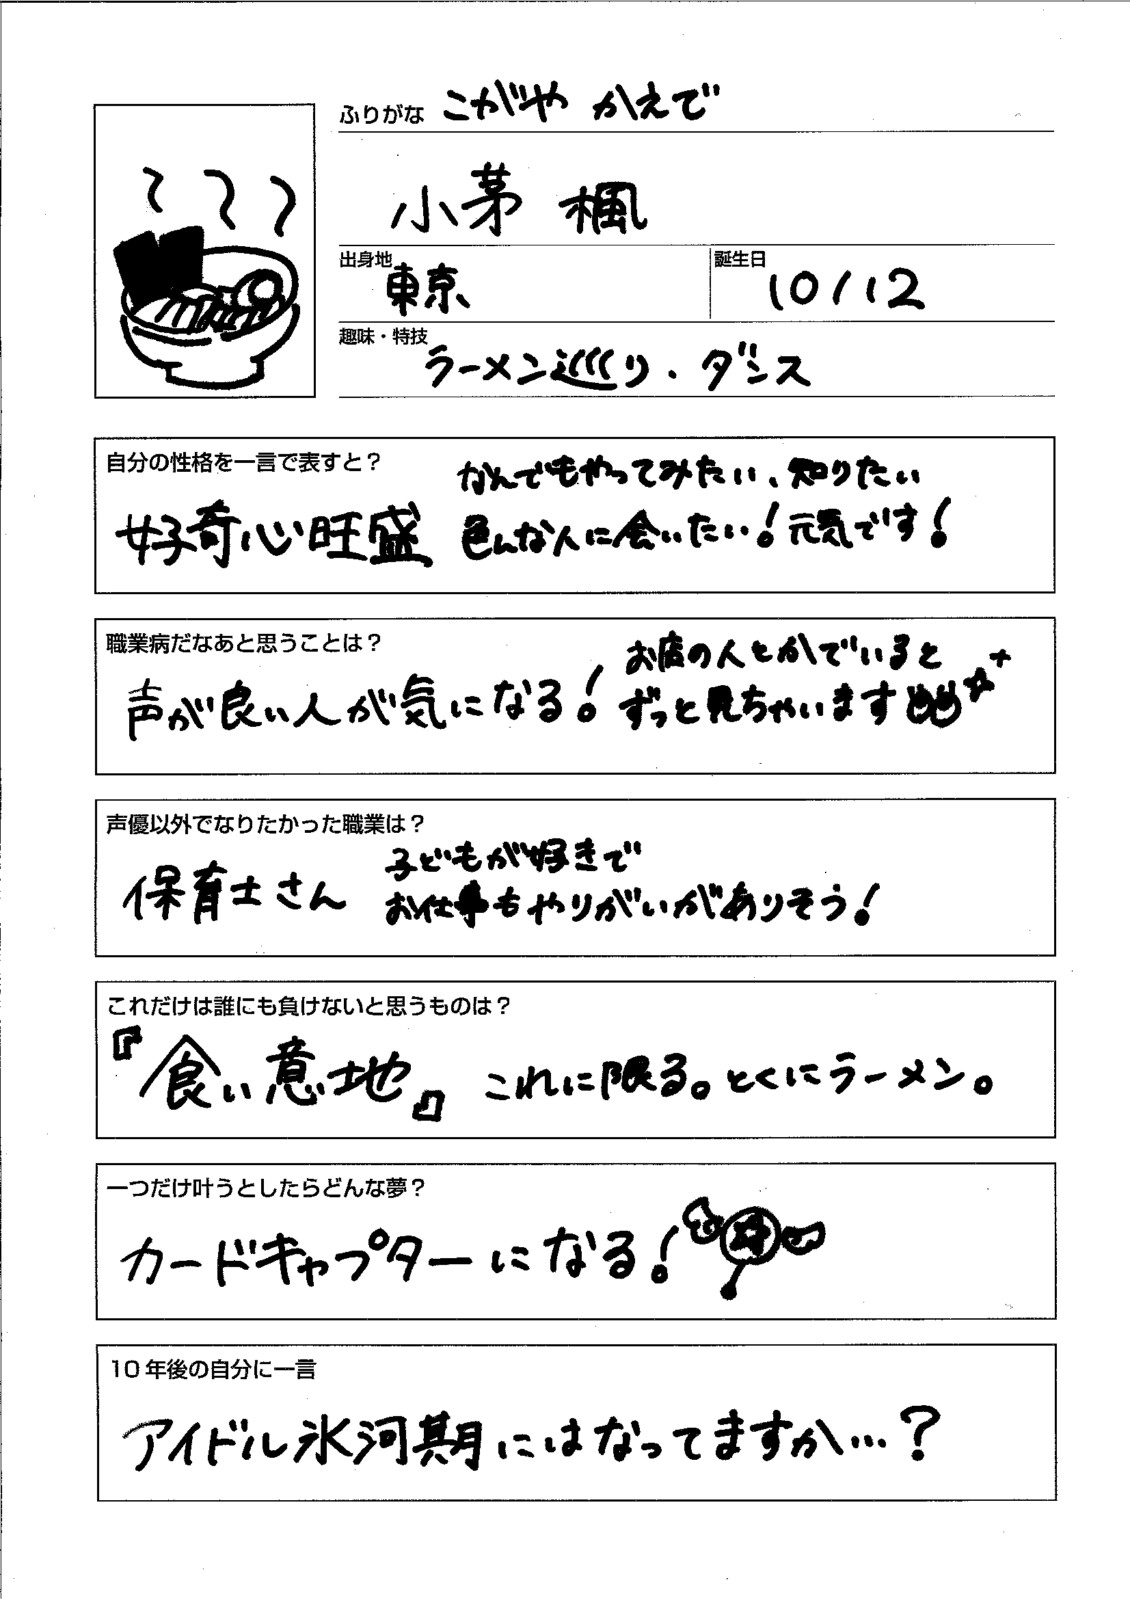 ふりがな こがや かえで
小茅 楓
出身地 東京
誕生日 10/12
趣味・特技 ラーメン巡り・ダンス
自分の性格を一言で表すと？
好奇心旺盛
なんでもやってみたい、知りたい
色んな人に会いたい！元気です！
職業病だなあと思うことは？
声が良い人が気になる！
お店の人とかでいると
ずっと見ちゃいます
声優以外でなりたかった職業は？
保育士さん
子どもが好きで
お仕事もやりがいがありそう！
これだけは誰にも負けないと思うものは？
『食い意地』これに限る。とくにラーメン。
一つだけ叶うとしたらどんな夢？
カードキャプターになる！
10年後の自分に一言
アイドル氷河期にはなってますか…？